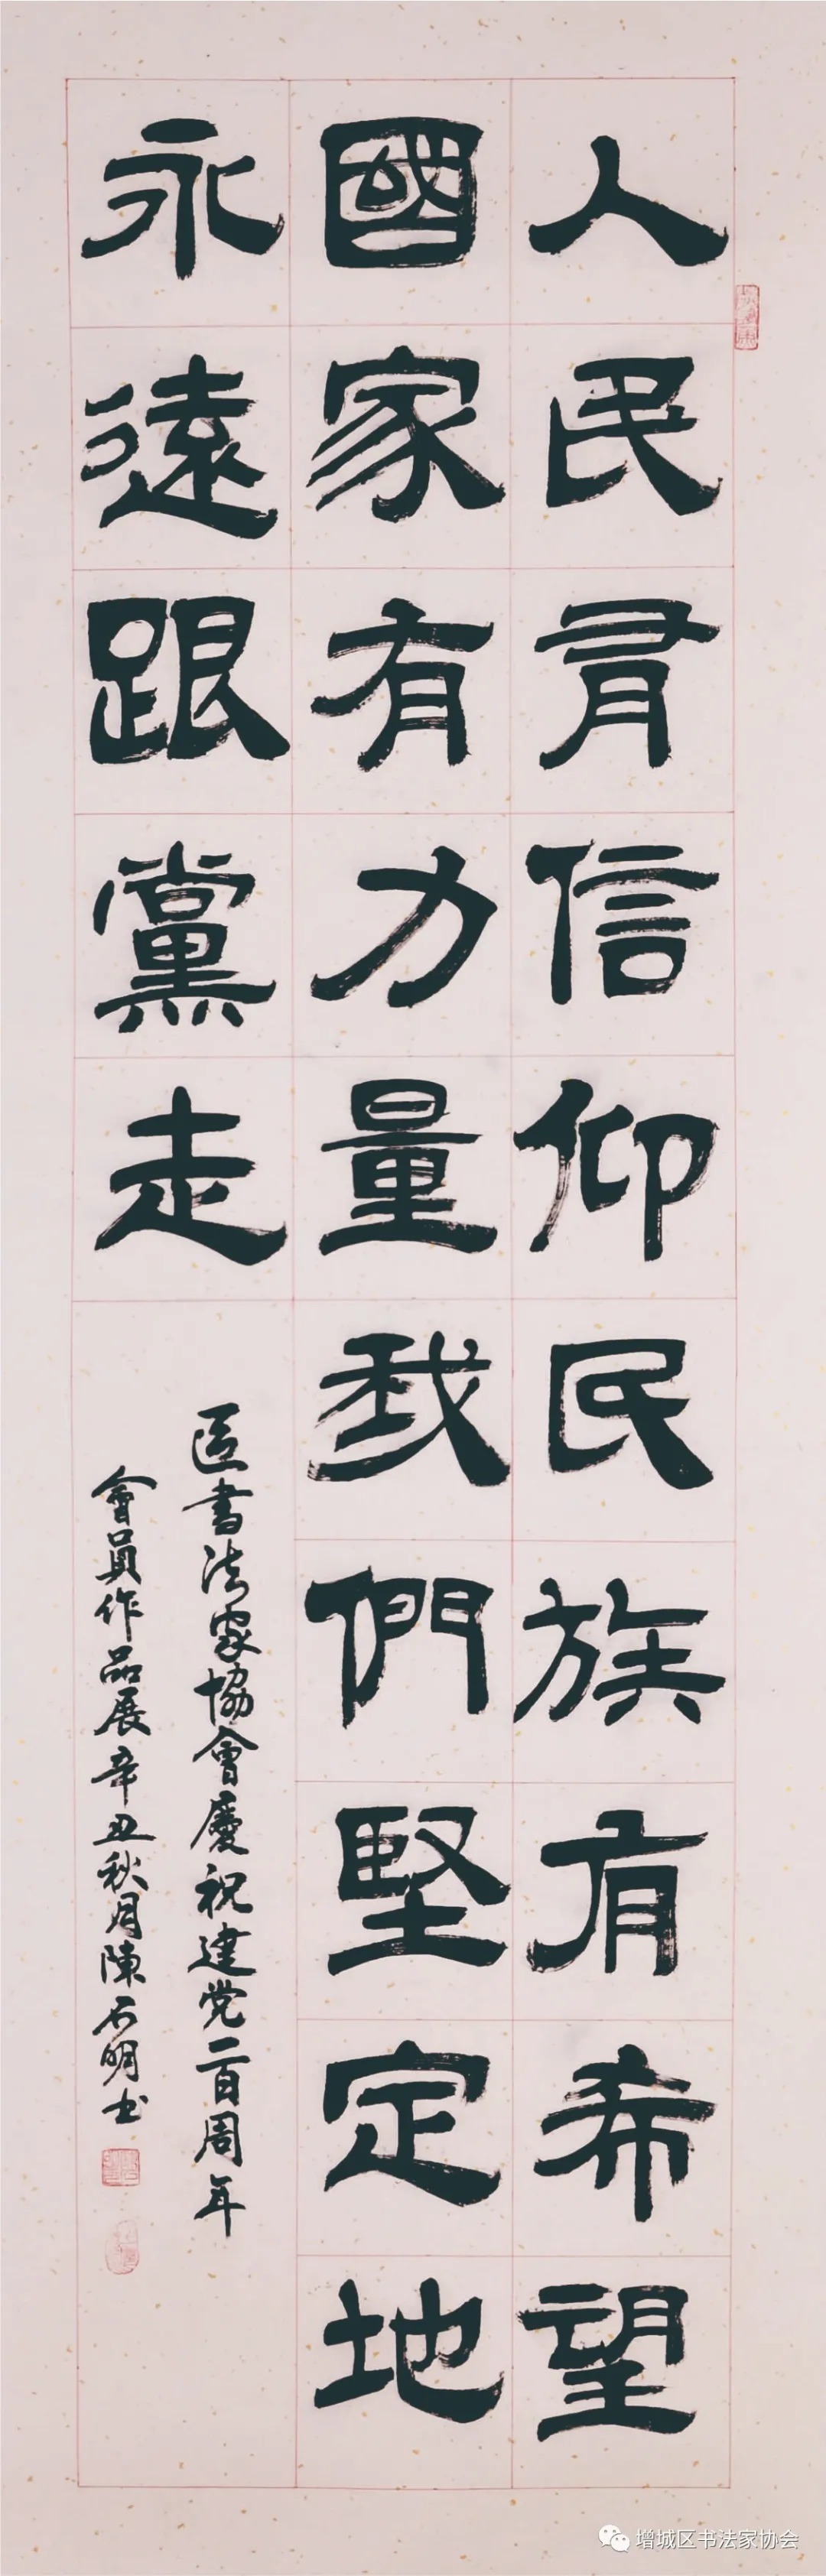 人民有信仰民族有希望
國家有力量我們堅定地
永遠跟黨走
區書法家協會慶祝建党一百周年
會員作品展辛丑秋月陳石明书
增城区书法家协会